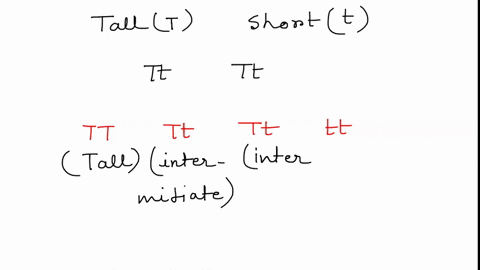 Tall (T) Short (t)
Tt Tt
TT Tt Tt tt
(Tall) (inter- (inter
mitiate)